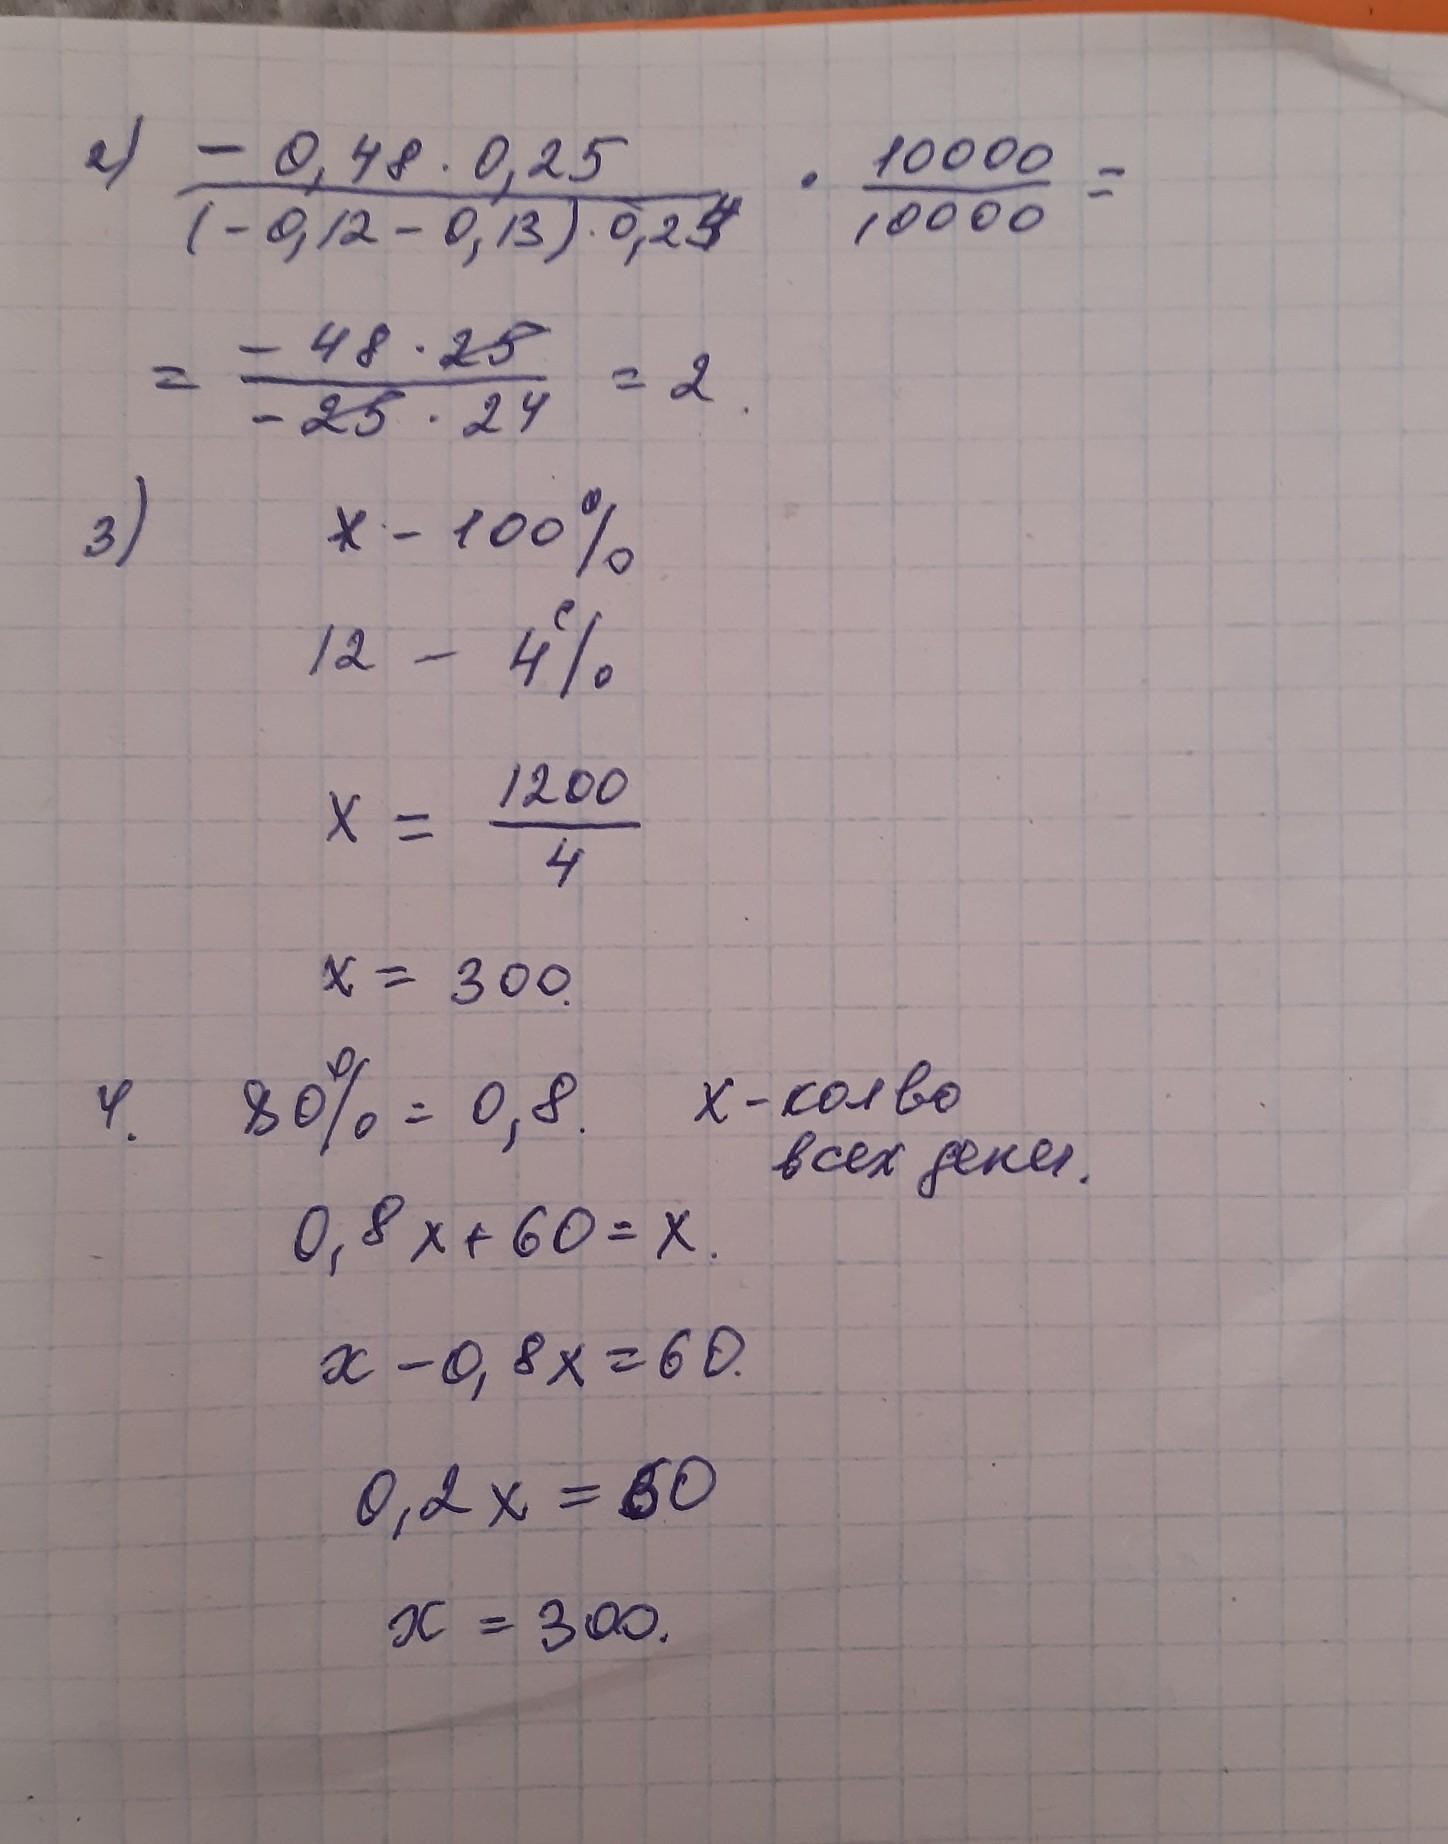 2) - 0,48 · 0,25 / (-0,12 - 0,13) · 0,24 · 10000 / 10000 =
= - 48 · 25 / - 25 · 24 = 2.
3) x - 100%
12 - 4%
x = 1200 / 4
x = 300.
4. 80% = 0,8. x - колво
всех денег.
0,8x + 60 = x.
x - 0,8x = 60.
0,2x = 60
x = 300.